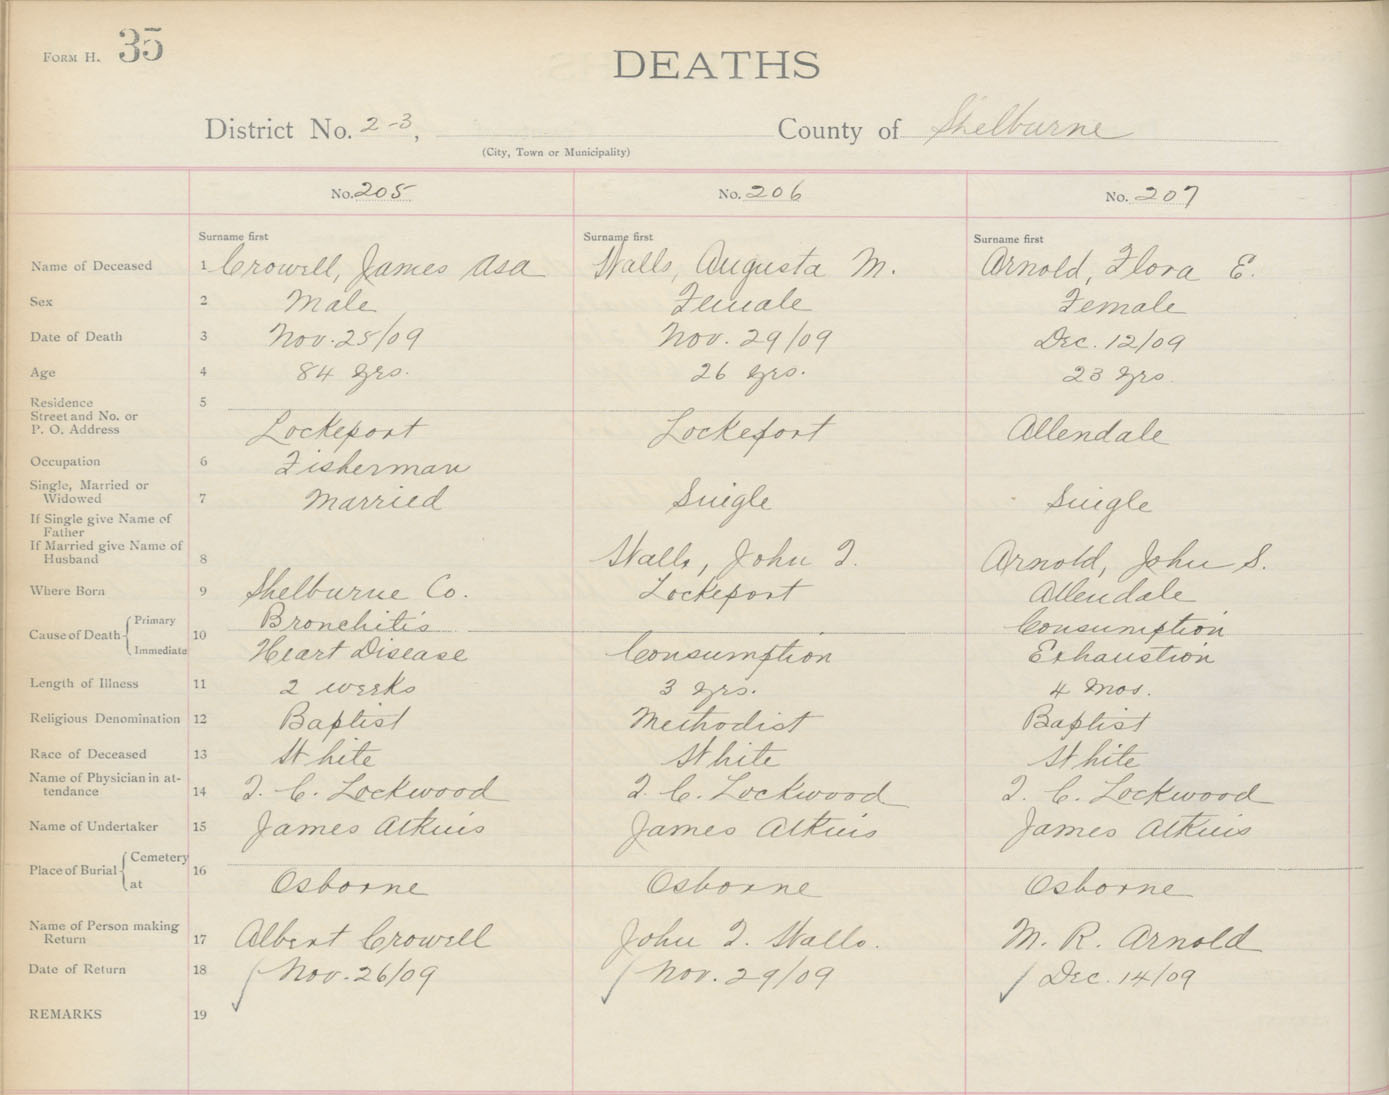 FORM H. 35
DEATHS
District No. 2-3, County of Shelburne
(City, Town or Municipality)
No. 205 No. 206 No. 207
Surname first Surname first Surname first
Name of Deceased 1 Crowell, James Asa Walls, Augusta M. Arnold, Flora E.
Sex 2 Male Female Female
Date of Death 3 Nov. 25/09 Nov. 29/09 Dec. 12/09
Age 4 84 yrs. 26 yrs. 23 yrs
Residence 5
Street and No. or
P. O. Address Lockeport Lockeport Allendale
Occupation 6 Fisherman
Single, Married or
Widowed 7 Married Single Single
If Single give Name of
Father
If Married give Name of
Husband 8 Walls, John T. Arnold, John S.
Where Born 9 Shelburne Co. Lockeport Allendale
Cause of Death Primary 10 Bronchitis Consumption
Immediate Heart Disease Consumption Exhaustion
Length of Illness 11 2 weeks 3 yrs. 4 mos.
Religious Denomination 12 Baptist Methodist Baptist
Race of Deceased 13 White White White
Name of Physician in at-
tendance 14 T. C. Lockwood T. C. Lockwood T. C. Lockwood
Name of Undertaker 15 James Atkins James Atkins James Atkins
Place of Burial Cemetery 16
at Osborne Osborne Osborne
Name of Person making
Return 17 Albert Crowell John T. Walls. M. R. Arnold
Date of Return 18 Nov. 26/09 Nov. 29/09 Dec. 14/09
REMARKS 19